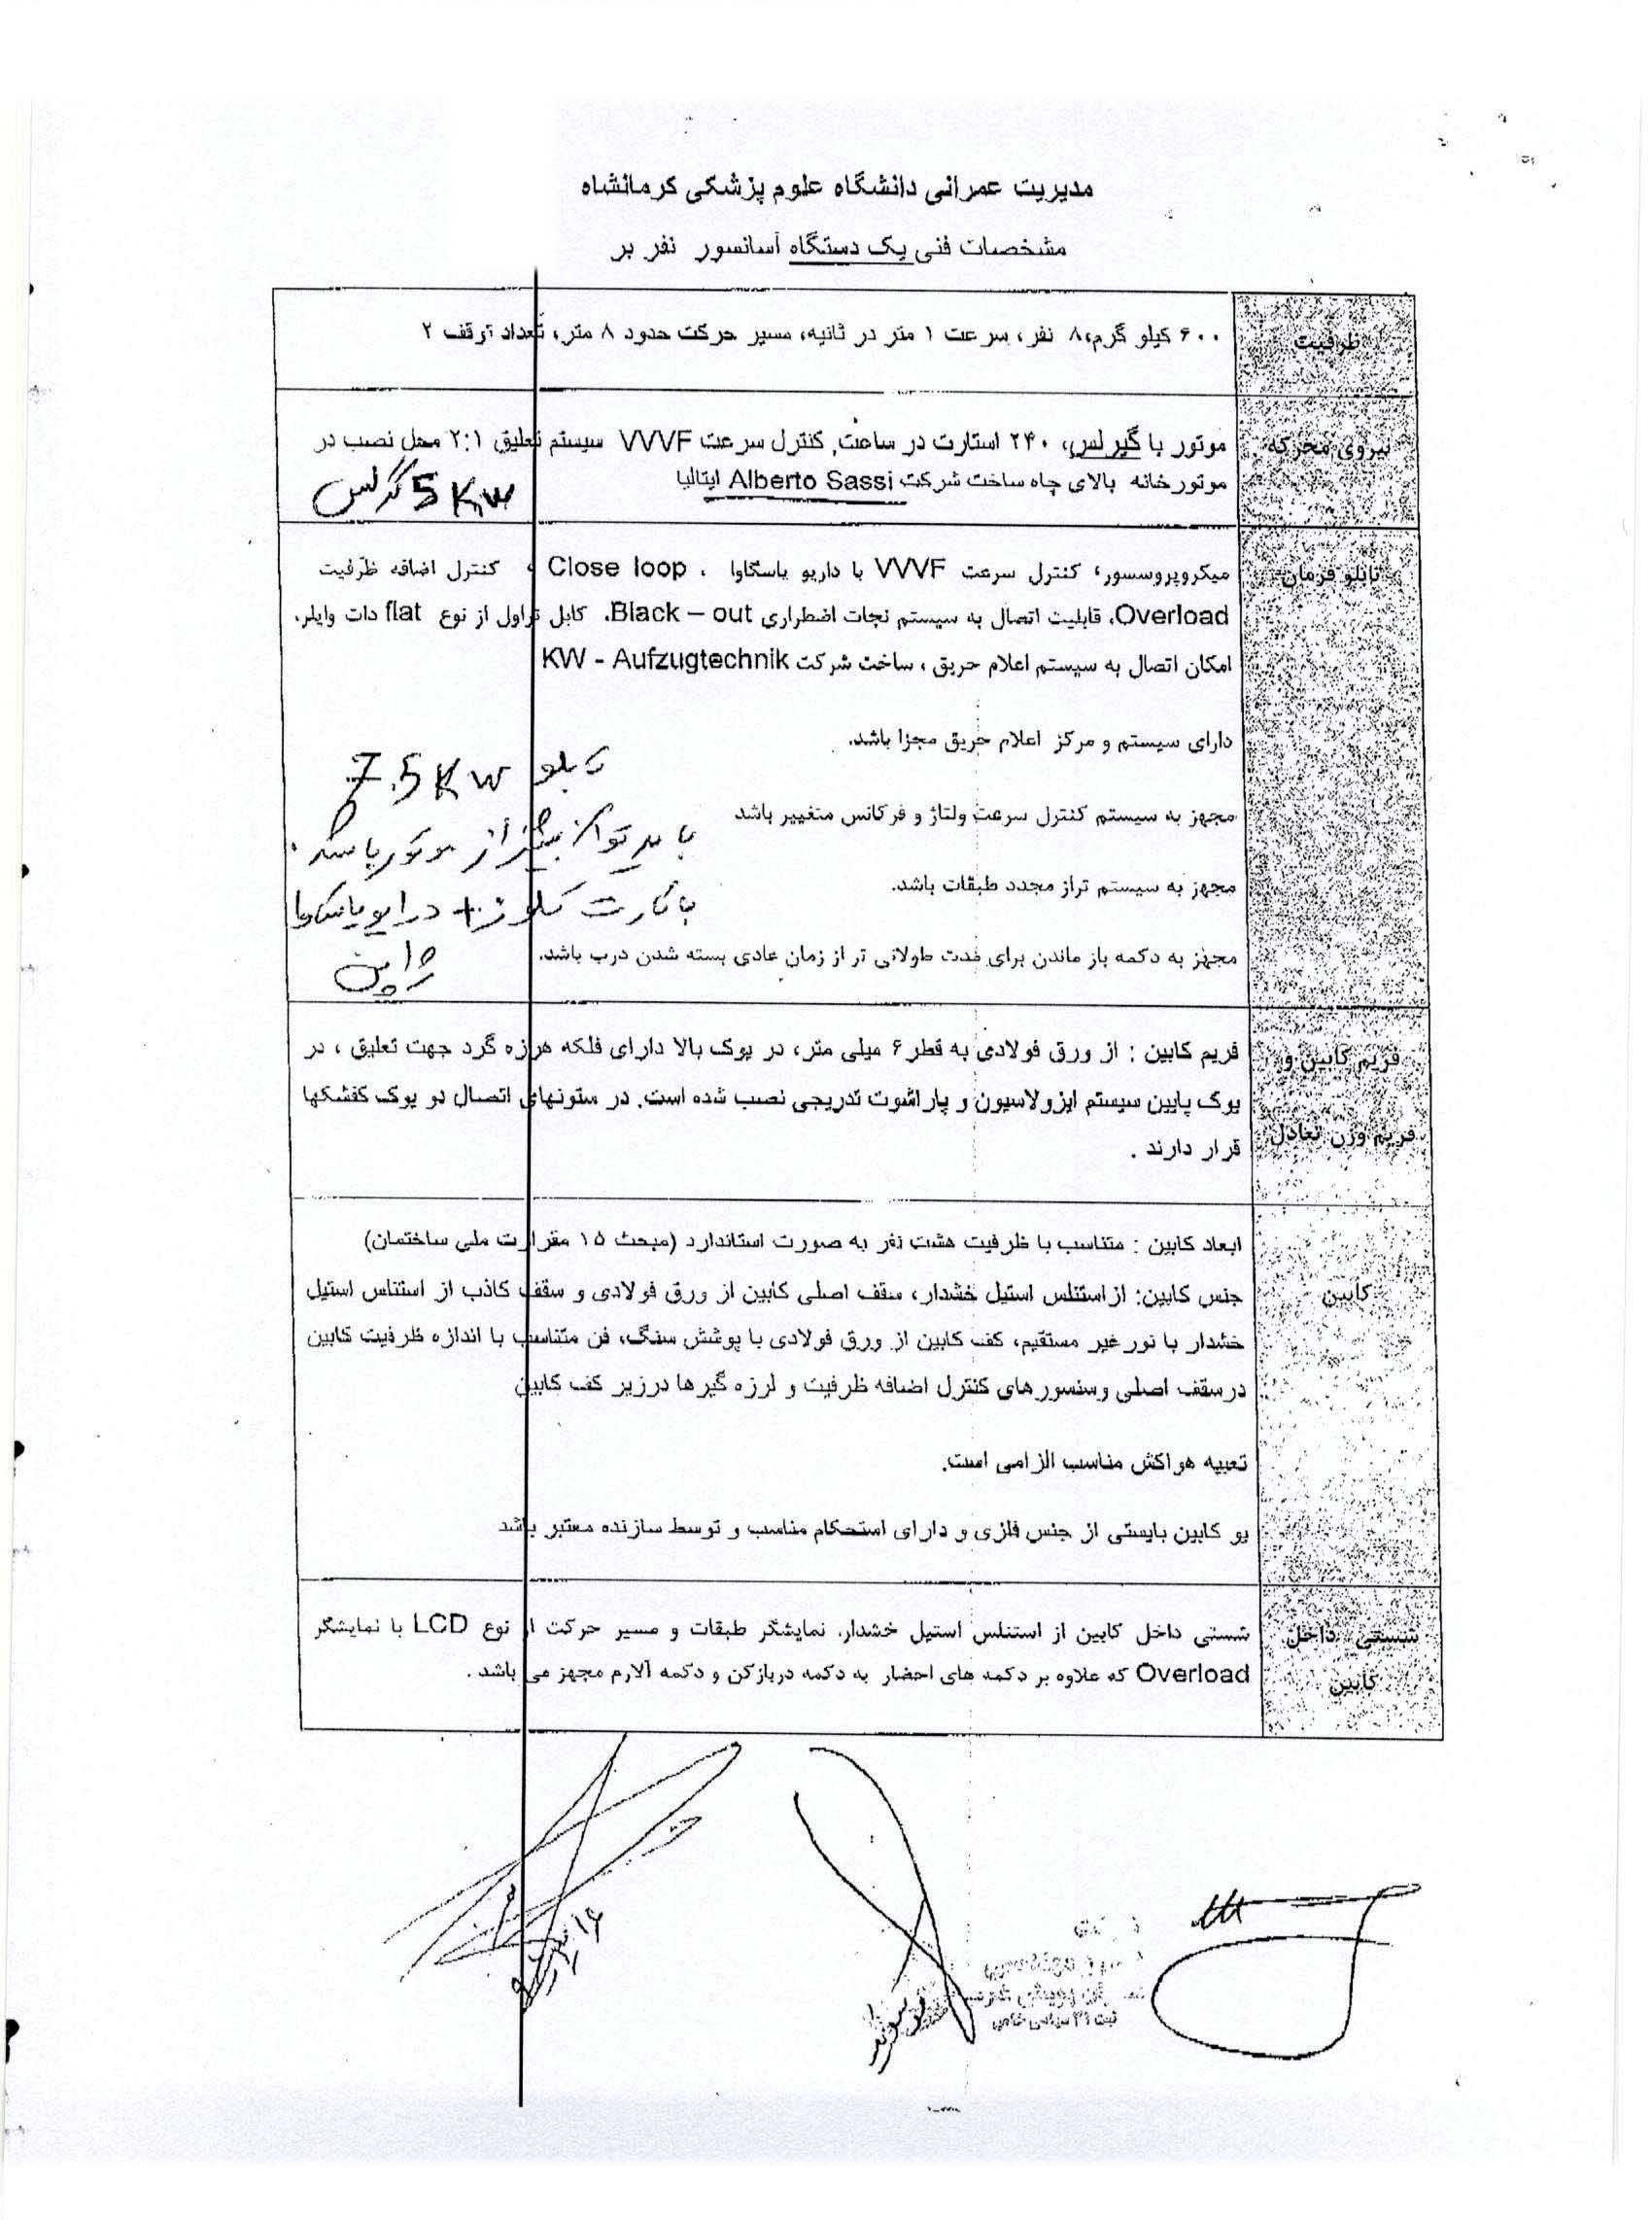 مدیریت عمرانی دانشگاه علوم پزشکی کرمانشاه
مشخصات فنی یک دستگاه آسانسور نفر بر
ظرفیت
۶۰۰ کیلو گرم،۸ نفر، سرعت ۱ متر در ثانیه، مسیر حرکت حدود ۸ متر، تعداد توقف ۲
نیروی محرکه
موتور با گیرلس، ۲۴۰ استارت در ساعت, کنترل سرعت VVVF سیستم تعلیق ۲:۱ محل نصب در
موتورخانه بالای چاه ساخت شرکت Alberto Sassi ایتالیا
5 Kw گرلس
تابلو فرمان
میکروپروسسور، کنترل سرعت VVVF با داریو یاسگاوا ، Close loop ، کنترل اضافه ظرفیت
Overload، قابلیت اتصال به سیستم نجات اضطراری Black – out، کابل تراول از نوع flat دات وایلر،
امکان اتصال به سیستم اعلام حریق ، ساخت شرکت KW - Aufzugtechnik
دارای سیستم و مرکز اعلام حریق مجزا باشد.
تابلو 7.5 Kw
مجهز به سیستم کنترل سرعت ولتاژ و فرکانس متغییر باشد
باید توان بیشتر از موتور باشد.
مجهز به سیستم تراز مجدد طبقات باشد.
با کارت کلوز + درایو یاسکاوا
مجهز به دکمه باز ماندن برای مدت طولانی تر از زمان عادی بسته شدن درب باشد.
ژاپن
فریم کابین و
فریم وزن تعادل
فریم کابین : از ورق فولادی به قطر ۶ میلی متر، در یوک بالا دارای فلکه هرزه گرد جهت تعلیق ، در
یوک پایین سیستم ایزولاسیون و پاراشوت تدریجی نصب شده است. در ستونهای اتصال دو یوک کفشکها
قرار دارند .
کابین
ابعاد کابین : متناسب با ظرفیت هشت نفر به صورت استاندارد (مبحث ۱۵ مقرارت ملی ساختمان)
جنس کابین: از استنلس استیل خشدار، سقف اصلی کابین از ورق فولادی و سقف کاذب از استنلس استیل
خشدار با نور غیر مستقیم، کف کابین از ورق فولادی با پوشش سنگ، فن متناسب با اندازه ظرفیت کابین
در سقف اصلی وسنسور های کنترل اضافه ظرفیت و لرزه گیر ها درزیر کف کابین
تعبیه هواکش مناسب الزامی است.
یو کابین بایستی از جنس فلزی و دارای استحکام مناسب و توسط سازنده معتبر باشد
شستی داخل
کابین
شستی داخل کابین از استنلس استیل خشدار, نمایشگر طبقات و مسیر حرکت از نوع LCD با نمایشگر
Overload که علاوه بر دکمه های احضار به دکمه دربازکن و دکمه آلارم مجهز می باشد .